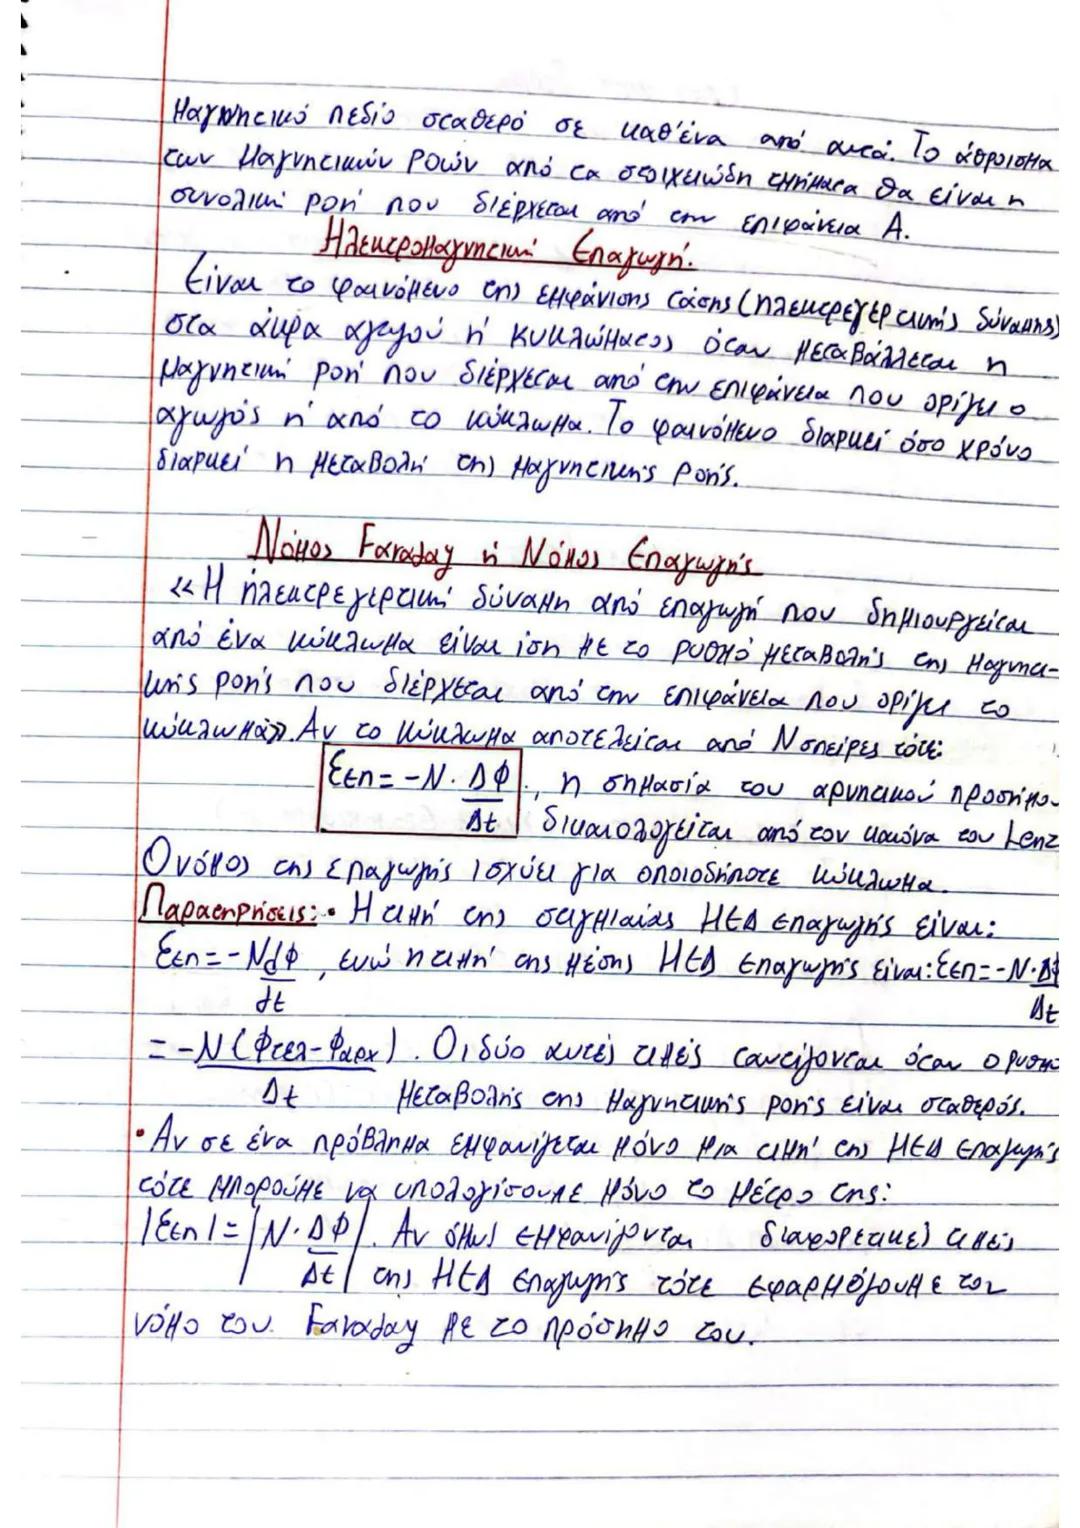 Μαγνητικό πεδίο σταθερό σε καθ'ένα από αυτά. Το άθροισμα
των Μαγνητικών Ροών από τα στοιχειώδη τμήματα θα είναι η
συνολική ροή που διέρχεται από την επιφάνεια Α.
Ηλεκτρομαγνητική Επαγωγή.
Είναι το φαινόμενο της εμφάνισης τάσης (ηλεκτρεγερτικής δύναμης)
στα άκρα αγωγού ή κυκλώματος όταν μεταβάλλεται η
μαγνητική ροή που διέρχεται από την επιφάνεια που ορίζει ο
αγωγός ή από το κύκλωμα. Το φαινόμενο διαρκεί όσο χρόνο
διαρκεί η μεταβολή της μαγνητικής ροής.
Νόμος Faraday ή Νόμος Επαγωγής
<< Η ηλεκτρεγερτική δύναμη από επαγωγή που δημιουργείται
από ένα κύκλωμα είναι ίση με το ρυθμό μεταβολής της μαγνητι-
κής ροής που διέρχεται από την επιφάνεια που ορίζει το
κύκλωμα>>. Αν το κύκλωμα αποτελείται από Ν σπείρες τότε:
Εεπ = -Ν · ΔΦ/Δt , η σημασία του αρνητικού προσήμου
δικαιολογείται από τον κανόνα του Lenz
Ο νόμος της επαγωγής ισχύει για οποιοδήποτε κύκλωμα.
Παρατηρήσεις: • Η τιμή της στιγμιαίας ΗΕΔ επαγωγής είναι:
Εεπ = -Ν dΦ/dt , ενώ η τιμή της μέσης ΗΕΔ επαγωγής είναι: Εεπ = -Ν · ΔΦ/Δt
= -Ν (Φτελ - Φαρχ)/Δt . Οι δύο αυτές τιμές ταυτίζονται όταν ο ρυθμό
μεταβολής της μαγνητικής ροής είναι σταθερός.
• Αν σε ένα πρόβλημα εμφανίζεται μόνο μια τιμή της ΗΕΔ επαγωγής
τότε μπορούμε να υπολογίσουμε μόνο το μέτρο της:
|Εεπ| = |Ν · ΔΦ/Δt|. Αν όμως εμφανίζονται διαφορετικές τιμές
της ΗΕΔ επαγωγής τότε εφαρμόζουμε τον
νόμο του Faraday με το πρόσημο του.